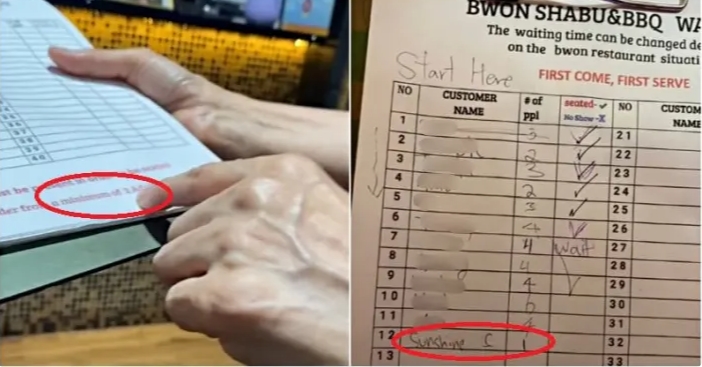 a minimum of 2 A
BWON SHABU&BBQ WA
The waiting time can be changed de
on the bwon restaurant situati
Start Here
FIRST COME, FIRST SERVE
NO CUSTOMER NAME # of ppl seated-✓ No Show-X NO CUSTOM NAME
1 3 ✓ 21
2 2 ✓ 22
3 3 ✓ 23
4 2 ✓ 24
5 3 ✓ 25
6 4 ✓ 26
7 4 wait 27
8 4 28
9 4 29
10 6 30
11 4 31
12 Sunshine C 1 32
13 33